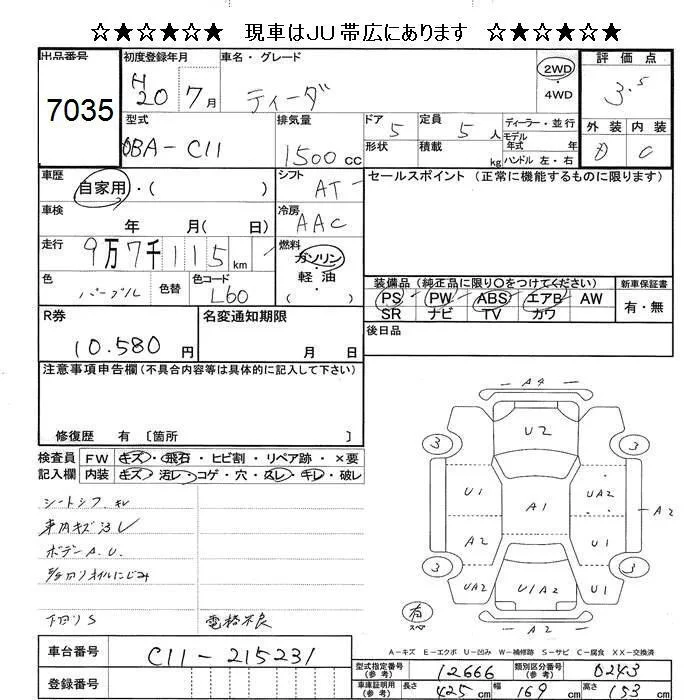 ☆★☆★☆★ 現車はJU帯広にあります ☆★☆★☆★
出品番号 初度登録年月 車名・グレード 2WD 評価点
7035 H20 7月 ティーダ ・4WD 3.5
型式 排気量 ドア 5 定員 5人 ディーラー・並行 外装 内装
DBA-C11 1500cc 形状 積載 kg モデル年式 年 D C
ハンドル 左・右
車歴 自家用・( ) シフト AT セールスポイント (正常に機能するものに限ります)
車検 年 月( 日) 冷房 AAC
走行 9万7千115km 燃料 ガソリン・軽油 ( )
色 パープル 色替 色コード L60
装備品 (純正品に限り〇をつけてください) 新車保証書
PS PW ABS エアB AW 有・無
SR ナビ TV カワ
R券 10.580円 名変通知期限 月 日 後日品
注意事項申告欄(不具合内容等は具体的に記入して下さい)
修復歴 有 〔箇所 〕
検査員 FW キズ・飛石・ヒビ割・リペア跡・×要
記入欄 内装 キズ・汚レ・コゲ・穴・スレ・キレ・破レ
シートシワ キレ
車内キズ汚レ
ボデーA.U.
下回りS 電格不良
A4
U2
3 3
U1 A1 UA2
A2 U1
A2
3 3
UA2 U1A2 U1
有 スペア A2
A-キズ E-エクボ U-凹み W-補修跡 S-サビ C-腐食 XX-交換済
車台番号 C11-215231
登録番号
型式指定番号(参考) 12666 類別区分番号(参考) 0243
車庫証明用(参考) 長さ 425cm 幅 169cm 高さ 153cm